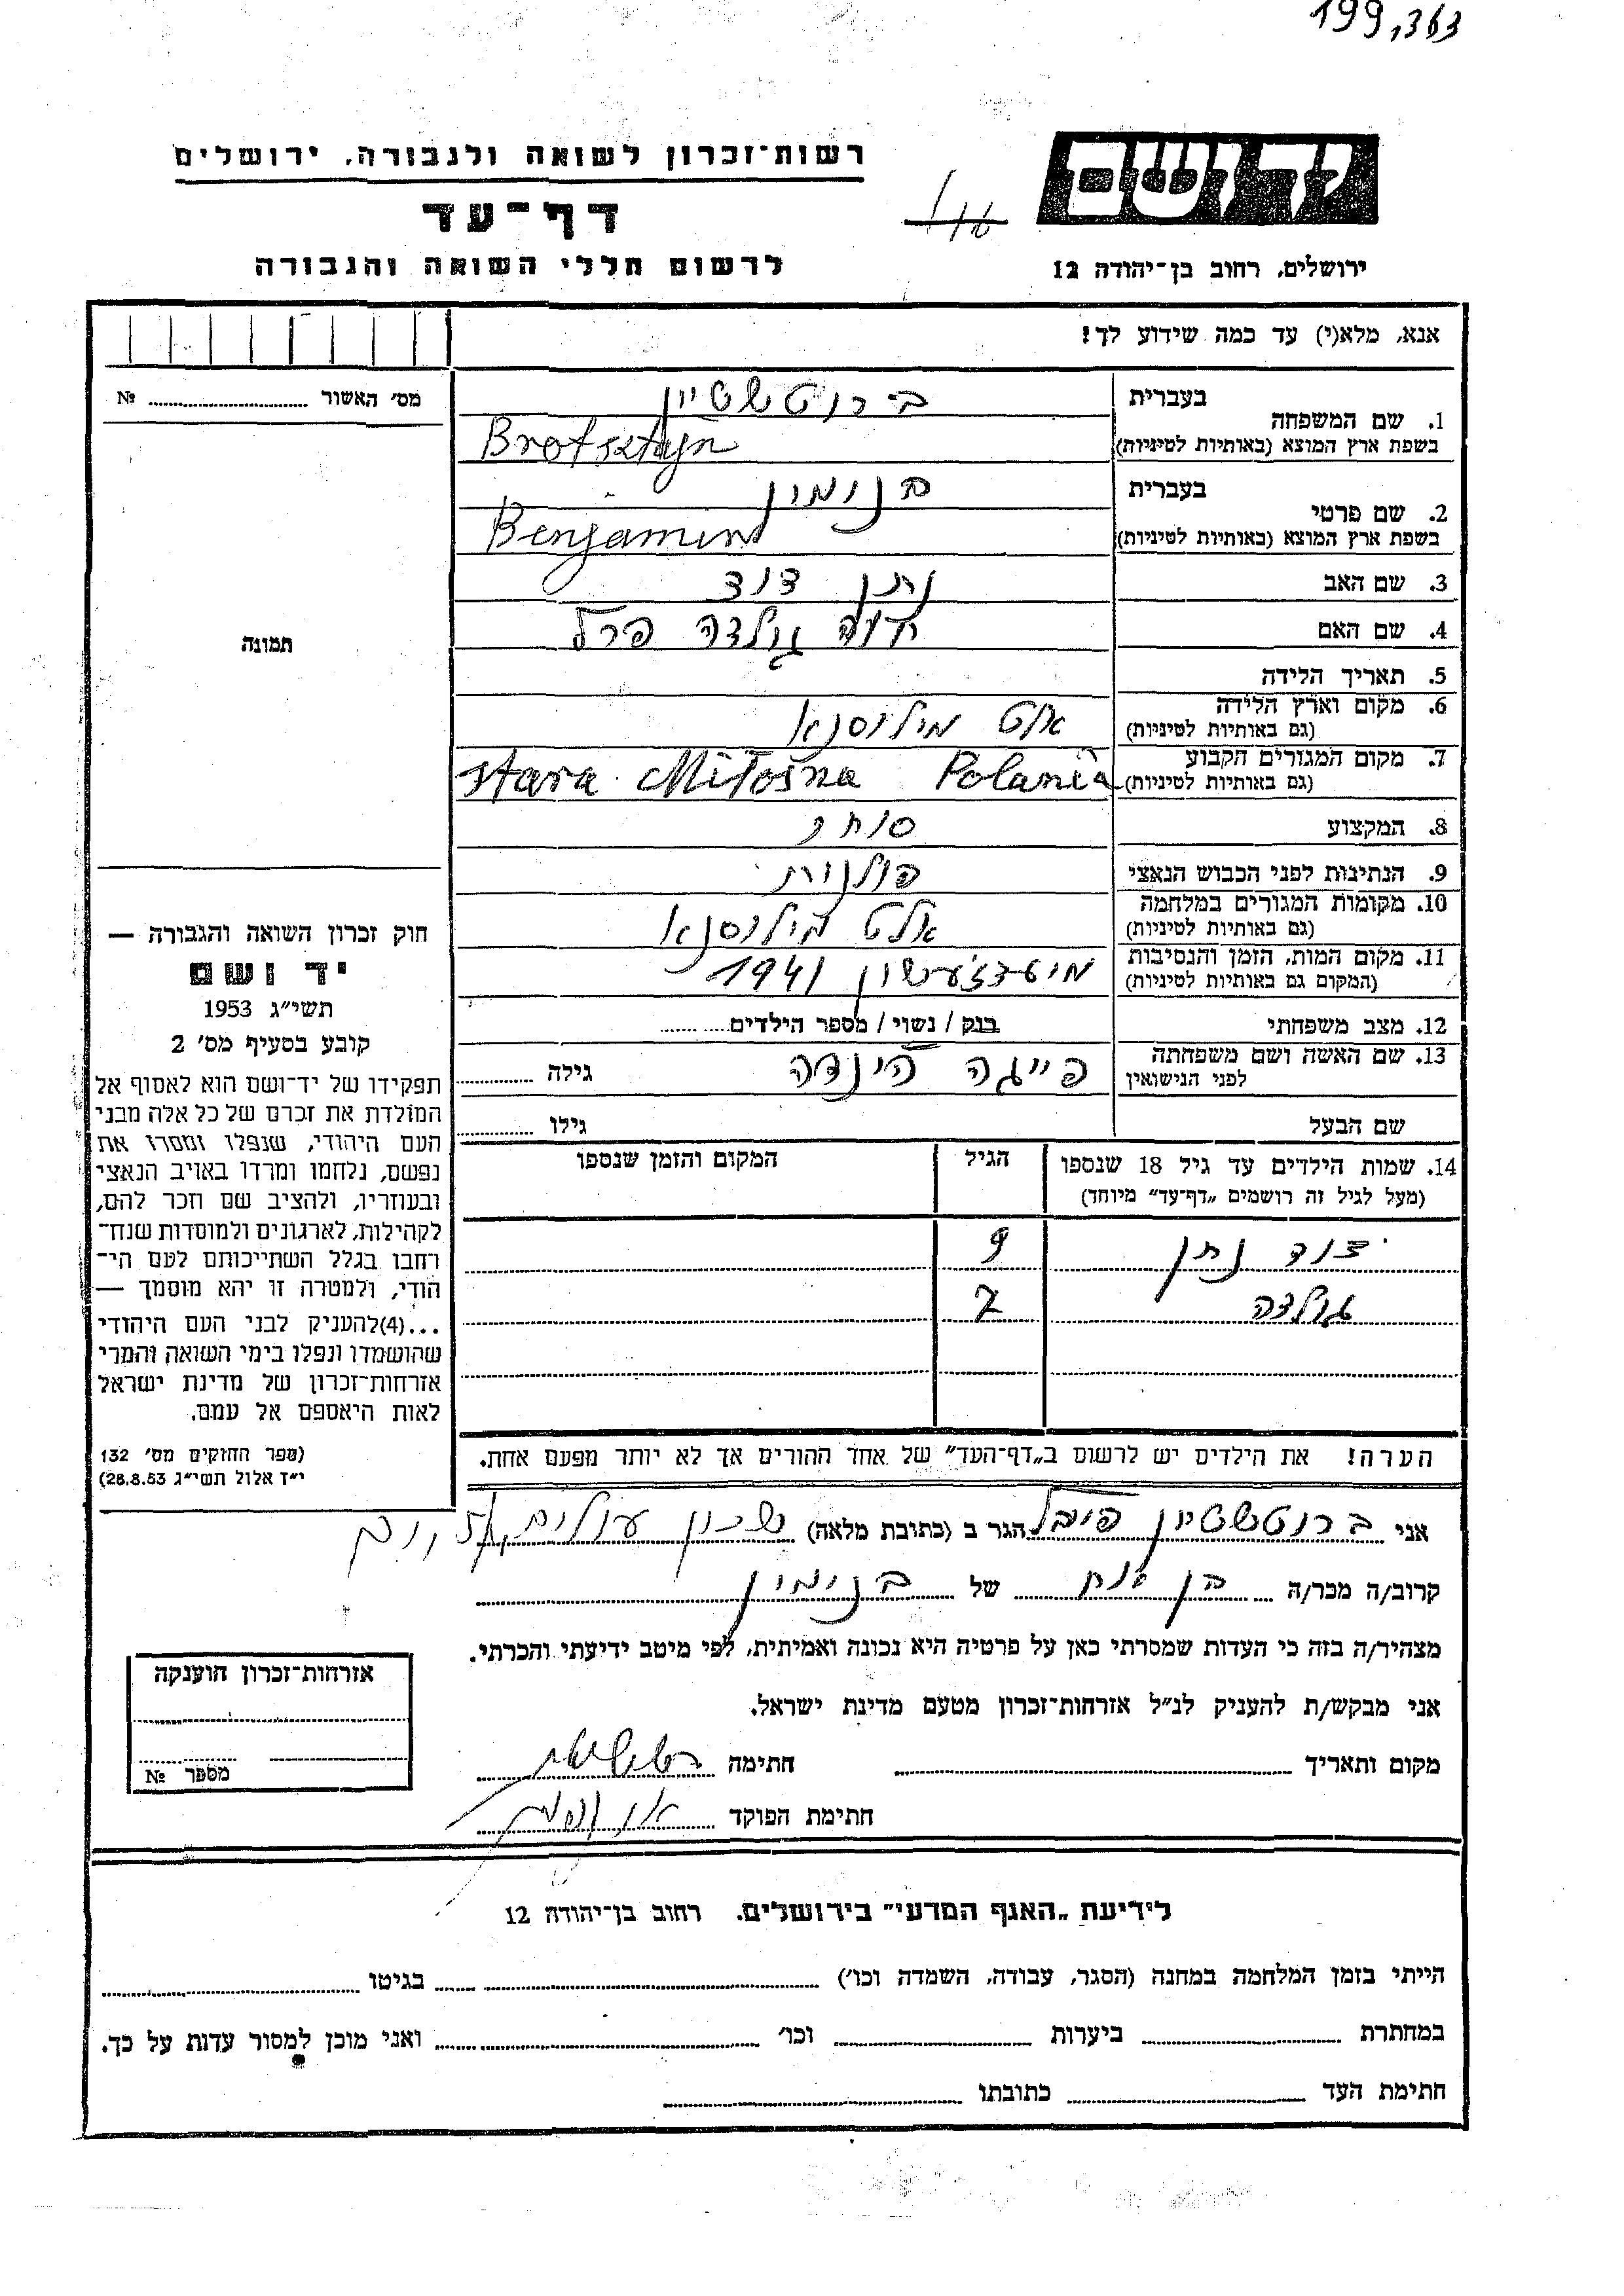 199,363
רשות־זכרון לשואה ולגבורה, ירושלים
יד ושם
דף־עד
לרשום חללי השואה והגבורה
ירושלים, רחוב בן־יהודה 12
אנא, מלא(י) עד כמה שידוע לך!
מס' האשור № 
1. שם המשפחה בעברית ברוטשטיין
בשפת ארץ המוצא (באותיות לטיניות) Brotsztejn
2. שם פרטי בעברית בנימין
בשפת ארץ המוצא (באותיות לטיניות) Benjamin
3. שם האב נתן דוד
4. שם האם חיה גולדה פרל
תמונה
5. תאריך הלידה
6. מקום וארץ הלידה (גם באותיות לטיניות) אלט מילוסנא
7. מקום המגורים הקבוע (גם באותיות לטיניות) Stara Miłosna Polania
8. המקצוע סוחר
9. הנתינות לפני הכבוש הנאצי פולנית
10. מקומות המגורים במלחמה (גם באותיות לטיניות) אלט מילוסנא
11. מקום המות, הזמן והנסיבות (המקום גם באותיות לטיניות) 1941
12. מצב משפחתי רווק / נשוי / מספר הילדים
13. שם האשה ושם משפחתה לפני הנישואין פייגה הינדה גילה
שם הבעל גילו
14. שמות הילדים עד גיל 18 שנספו הגיל המקום והזמן שנספו
(מעל לגיל זה רושמים „דף־עד” מיוחד)
דוד נתן 9
גולדה 7
הערה! את הילדים יש לרשום ב„דף־העד” של אחד ההורים אך לא יותר מפעם אחת.
חוק זכרון השואה והגבורה —
יד ושם
תשי״ג 1953
קובע בסעיף מס' 2
תפקידו של יד־ושם הוא לאסוף אל
המולדת את זכרם של כל אלה מבני
העם היהודי, שנפלו ומסרו את
נפשם, נלחמו ומרדו באויב הנאצי
ובעוזריו, ולהציב שם וזכר להם,
לקהילות, לארגונים ולמוסדות שנח־
רחבו בגלל השתייכותם לעם הי־
הודי, ולמטרה זו יהא מוסמך —
...(4)להעניק לבני העם היהודי
שהושמדו ונפלו בימי השואה והמרי
אזרחות־זכרון של מדינת ישראל
לאות היאספם אל עמם.
(ספר החוקים מס' 132
י״ז אלול תשי״ג 28.8.53)
אני ברוטשטיין פייבל הגר ב (כתובת מלאה) שכון עולים
קרוב/ה מכר/ה בן אח של בנימין
מצהיר/ה בזה כי העדות שמסרתי כאן על פרטיה היא נכונה ואמיתית, לפי מיטב ידיעתי והכרתי.
אני מבקש/ת להעניק לנ״ל אזרחות־זכרון מטעם מדינת ישראל.
מקום ותאריך חתימה
חתימת הפוקד
אזרחות־זכרון הוענקה
מספר №
לידיעת „האגף המדעי” בירושלים. רחוב בן־יהודה 12
הייתי בזמן המלחמה במחנה (הסגר, עבודה, השמדה וכו') בגיטו
במחתרת ביערות וכו' ואני מוכן למסור עדות על כך.
חתימת העד כתובתו